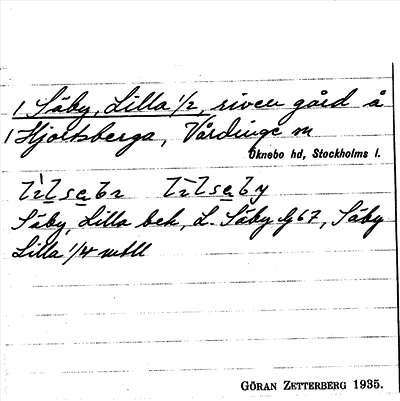 1 Säby, Lilla 1/2, riven gård å
1 Hjortsberga, Vårdinge sn
Öknebo hd, Stockholms l.
Säby, Lilla bek, L. Säby Gf 67, Säby
Lilla 1/4 mtll
GÖRAN ZETTERBERG 1935.